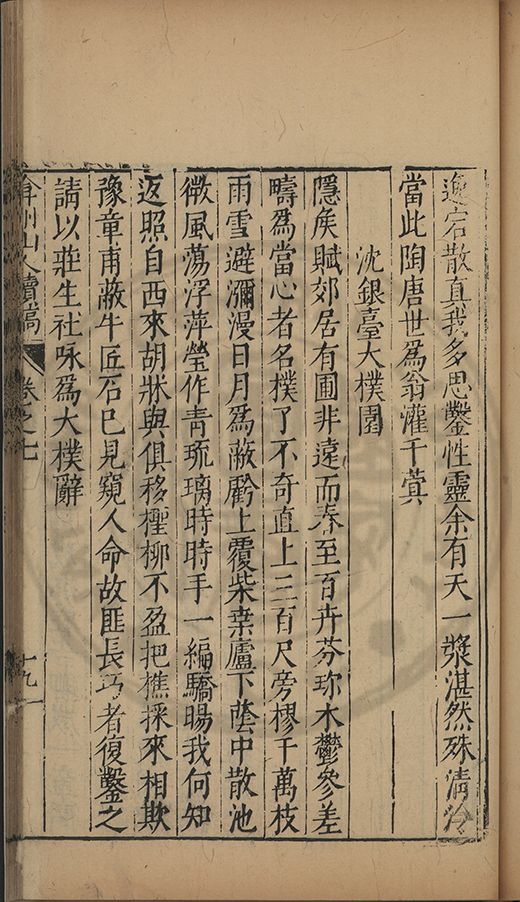 邊宕散真我多思鑿性靈余有天一漿湛然殊清泠
當此陶唐世爲翁灌千蓂
沈銀臺大樸園
隱矦賦郊居有圃非遠而春至百卉芬珎木鬱參差
疇爲當心者名樸了不奇直上三百尺旁樛千萬枝
雨雪避瀰漫日月爲蔽虧上覆柴桒廬下蔭中散池
微風蕩浮萍瑩作青琉璃時時手一編驕暘我何知
返照自西來胡牀與俱移檉栁不盈把樵採來相欺
豫章甫蔽牛匠石已見窺人命故匪長巧者復鑿之
請以莊生社咏爲大樸辭
弇州山人續稿
卷之七
十九